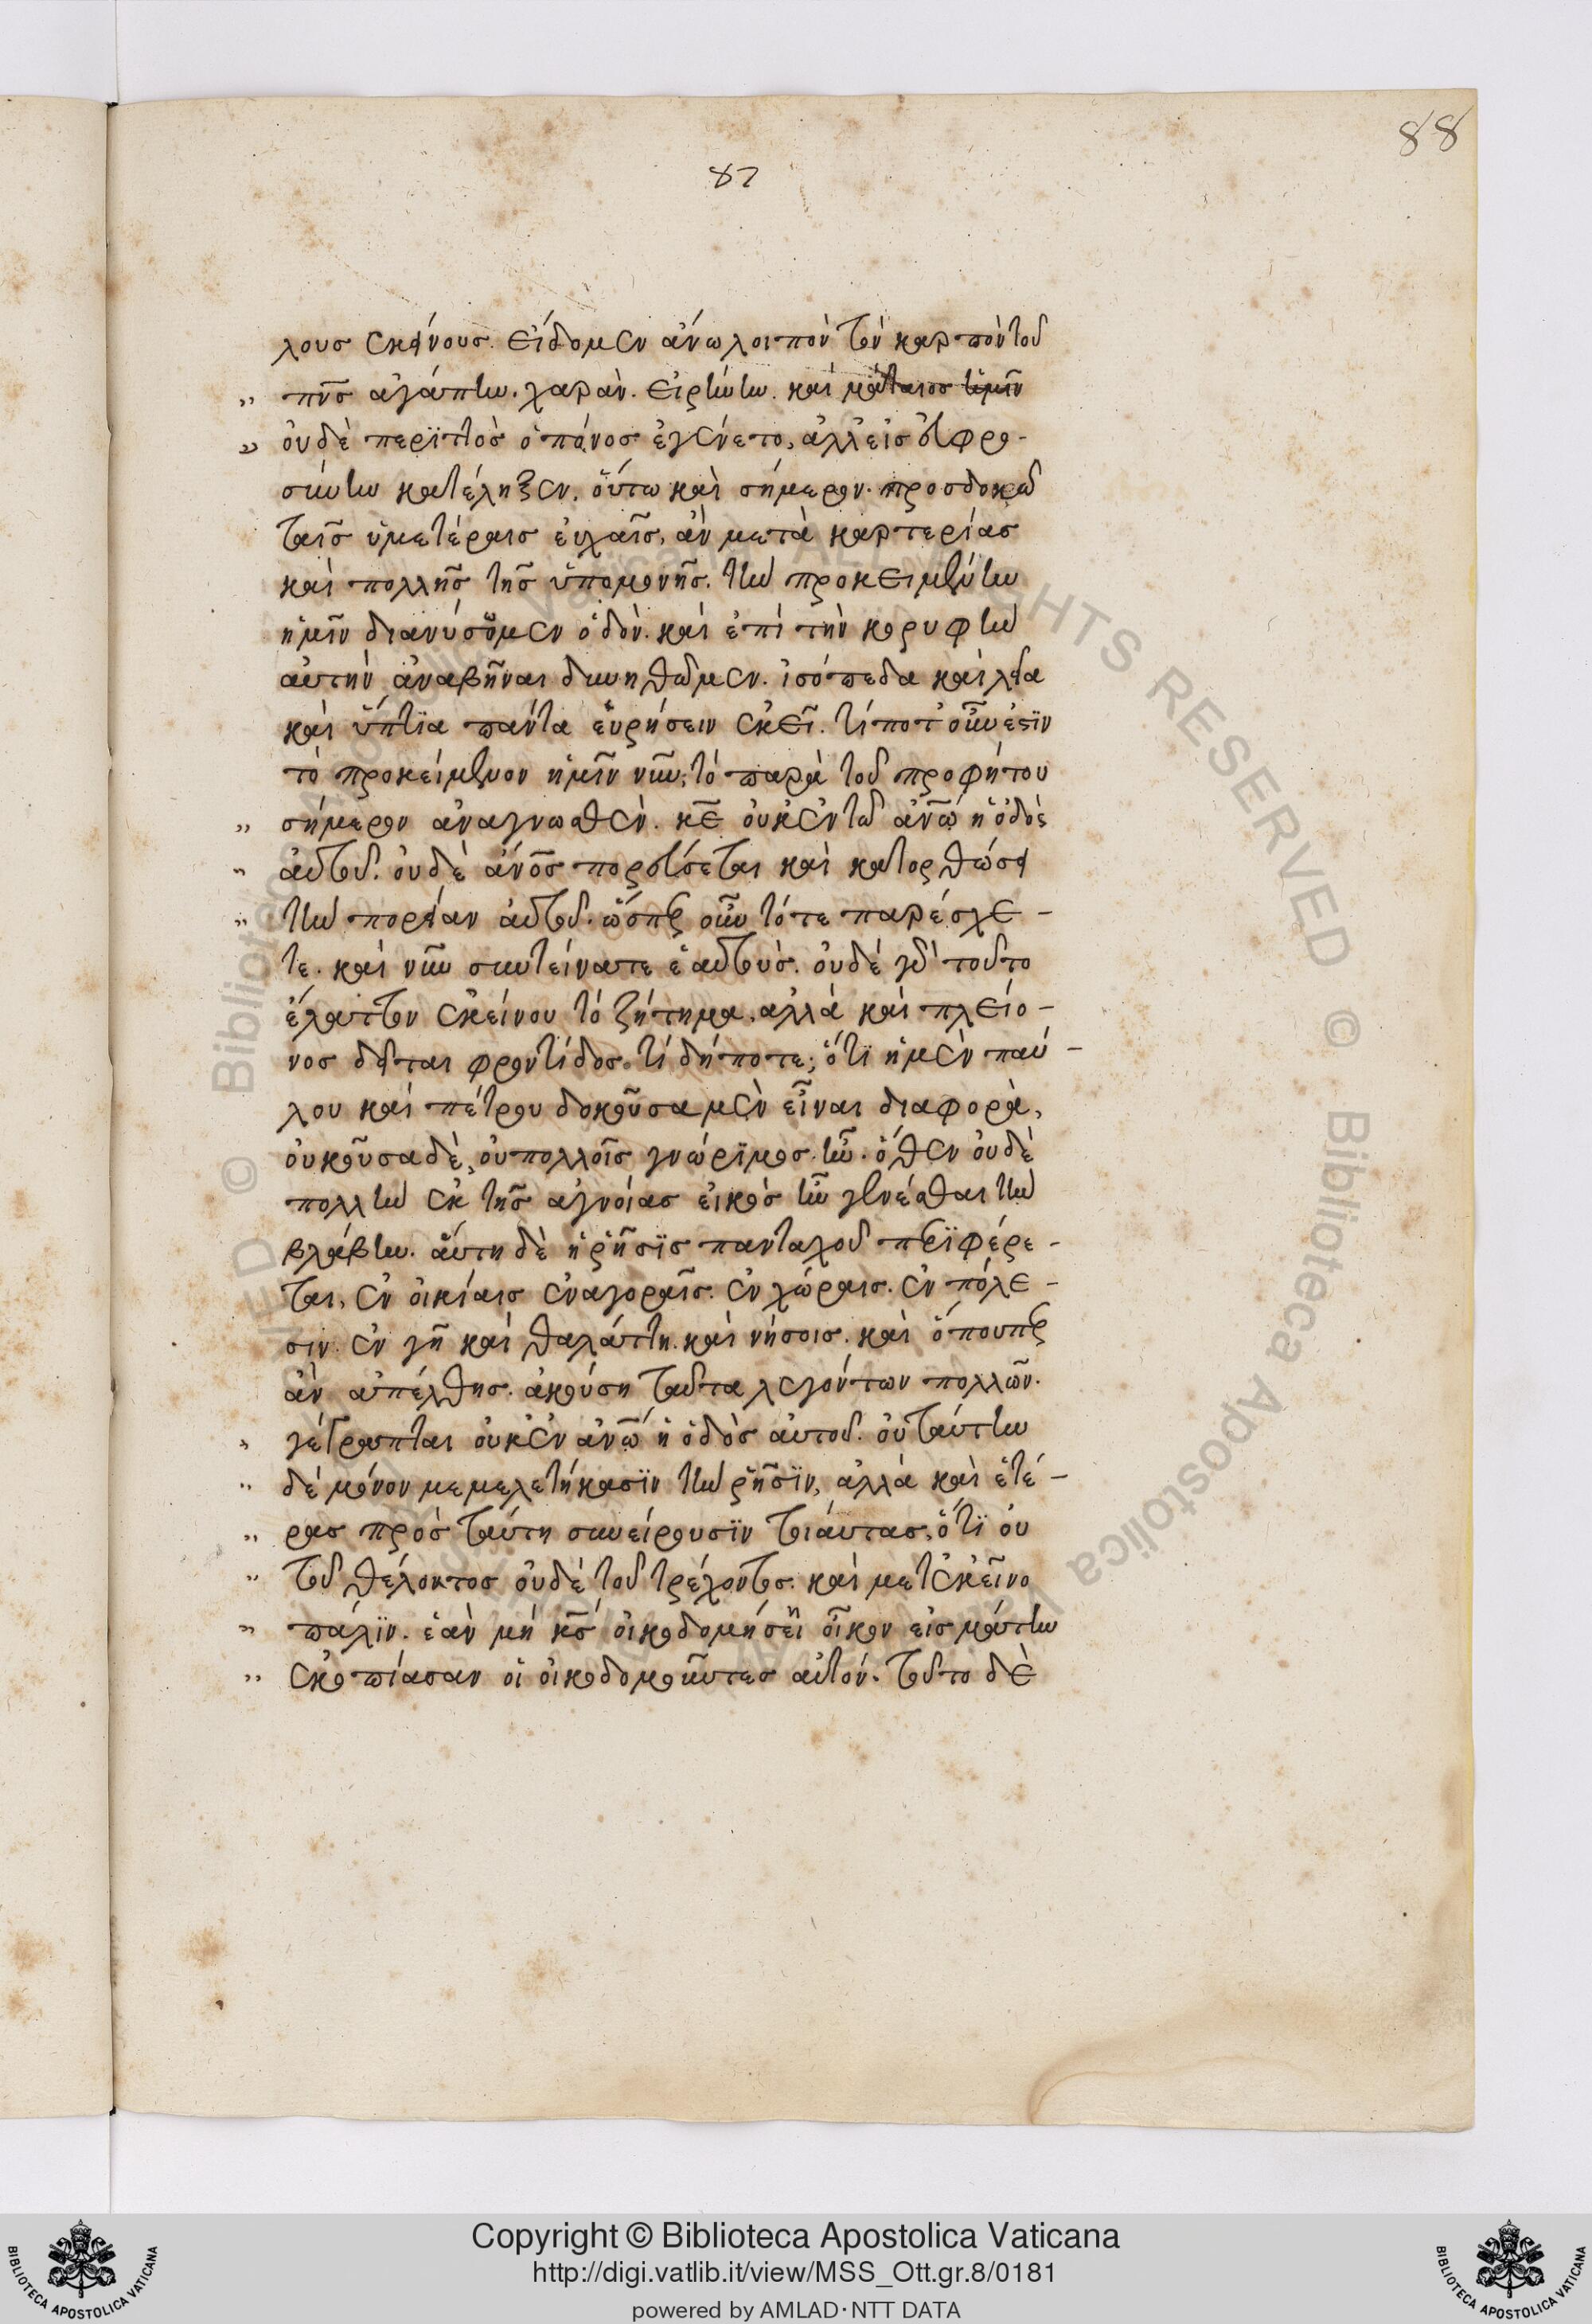 88
87
λους ἐκείνους. εἴδομεν ἄνω λοιπὸν τὸν καρπὸν τοῦ
πνς ἀγάπην. χαρὰν. εἰρήνην. καὶ μάταιος ἡμῖν
οὐδὲ περϊττὸς ὁ πόνος ἐγένετο, ἀλλ' εἰς εὐφρο-
σύνην κατέληξεν. οὕτω καὶ σήμερον. προσδοκῶ
ταῖς ὑμετέραις εὐχαῖς, ἂν μετὰ καρτερίας
καὶ πολλῆς τῆς ὑπομονῆς. τὴν προκειμένην
ἡμῖν διανύσωμεν ὁδὸν. καὶ ἐπὶ τὴν κορυφὴν
αὐτὴν ἀναβῆναι δυνηθῶμεν. ἰσόπεδα καὶ λεῖα
καὶ ὕπτϊα πάντα εὑρήσειν ἐκεῖ. τί ποτ' οὖν ἐστϊν
τὸ προκείμενον ἡμῖν νῦν; τὸ παρὰ τοῦ προφήτου
σήμερον ἀναγνωσθὲν. κε οὐκ ἐν τῶ ἀνω ἡ ὁδὸς
αὐτοῦ. οὐδὲ ἀνος πορεύσεται καὶ κατορθώσει
τὴν πορείαν αὐτοῦ. ὥσπερ οὖν τότε παρέσχε-
τε. καὶ νῦν συντείνατε ἑαυτοὺς. οὐδὲ γὰρ τοῦτο
ἔλαττον ἐκείνου τὸ ζήτημα, ἀλλὰ καὶ πλείο-
νος δεῖται φροντίδος. τί δήποτε; ὅτϊ ἡ μὲν παύ-
λου καὶ πέτρου δοκοῦσα μὲν εἶναι διαφορὰ,
οὐκ οὖσα δὲ, οὐ πολλοῖς γνώρϊμος ἦν. ὅθεν οὐδὲ
πολλὴν ἐκ τῆς ἀγνοίας εἰκὸς ἦν γενέσθαι τὴν
βλάβην. αὕτη δὲ ἡ ῥῆσϊς πανταχοῦ περϊφέρε-
ται, ἐν οἰκίαις ἐν ἀγοραῖς. ἐν χώραις. ἐν πόλε-
σιν. ἐν γῆ καὶ θαλάττη. καὶ νήσοις. καὶ ὅπουπερ
ἂν ἀπέλθης. ἀκούση ταῦτα λεγόντων πολλῶν.
γέγραπται οὐκ ἐν ἀνω ἡ ὁδὸς αὐτοῦ. οὐ ταύτην
δὲ μόνον μεμελετήκασϊν τὴν ῥῆσϊν, ἀλλὰ καὶ ἑτέ-
ρας πρὸς ταύτη συνείρουσϊν τοιαύτας, ὅτϊ οὐ
τοῦ θέλοντος οὐδὲ τοῦ τρέχοντος. καὶ μετ' ἐκεῖνο
πάλϊν. ἐὰν μή κς οἰκοδομήσεϊ οἶκον εἰς μάτην
ἐκοπίασαν οἱ οἰκοδομοῦντες αὐτόν. τοῦτο δὲ
Copyright © Biblioteca Apostolica Vaticana
http://digi.vatlib.it/view/MSS_Ott.gr.8/0181
powered by AMLAD·NTT DATA